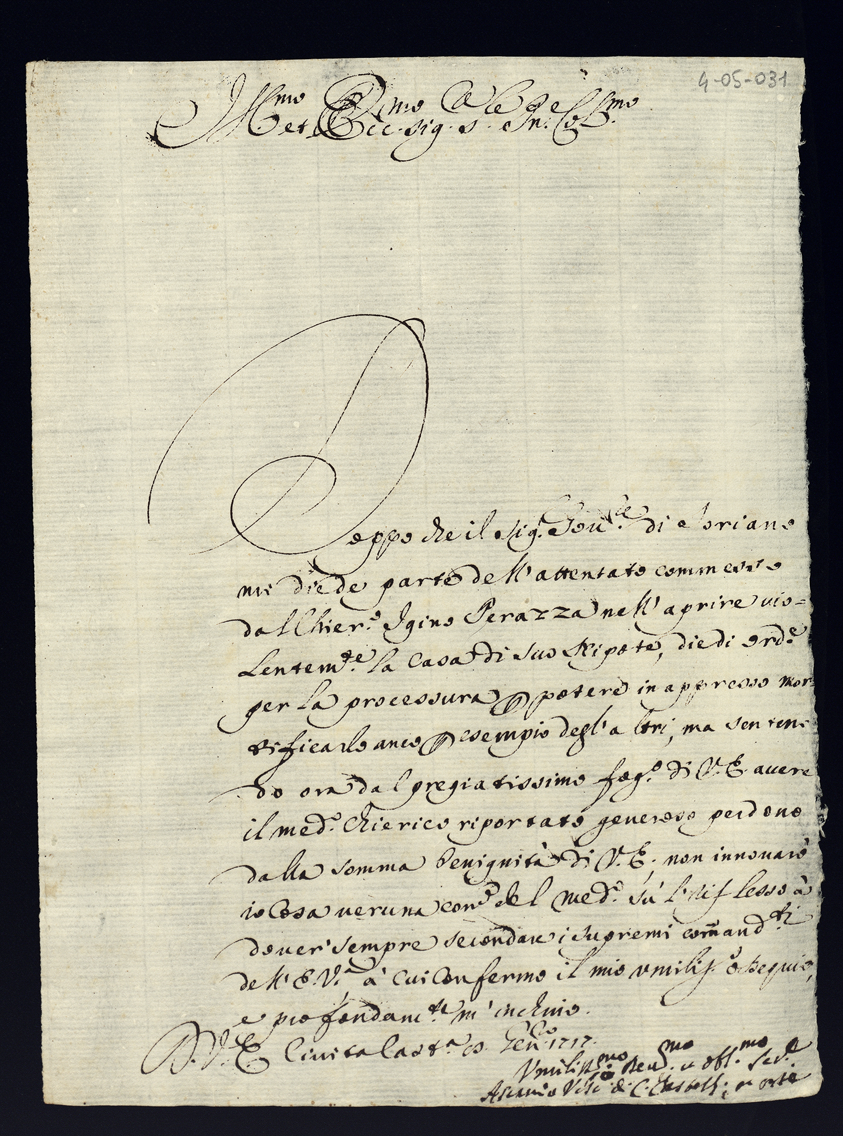 4-05-031
Ill.mo et Ecc. sig. s.
Doppo che il sig.
mi diede parte dell'attentato commesso
dal Chier.o Igino Perazza nell'aprire vio=
lentem.te la Casa di suo Nipote, diedi ord.e
per la processura potere in appresso mor
tificarlo anco esempio degl'altri, ma senten
do ora dal pregiatissimo fog.o di V.E. avere
il med.o Chierico riportato generoso perdono
dalla somma benignità di V.E. non innovarò
io Cosa veruna con.o del med.o sù l'riflesso à
dover sempre secondare i supremi comand.ti
dell'E.V.ra à cui confermo il mio umiliss.o ossequio,
e profondam.te m'inchino.
D.V.E. Civita 1717.
Umiliss.mo Deu.mo et obl.mo Ser.e